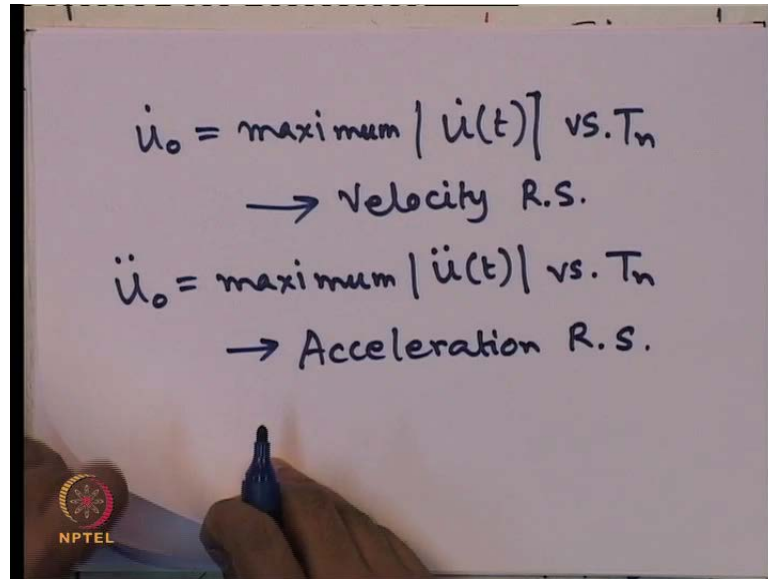 u̇₀ = maximum | u̇(t)| vs. Tn
→ Velocity R.S.
ü₀ = maximum | ü(t)| vs. Tn
→ Acceleration R.S.
NPTEL